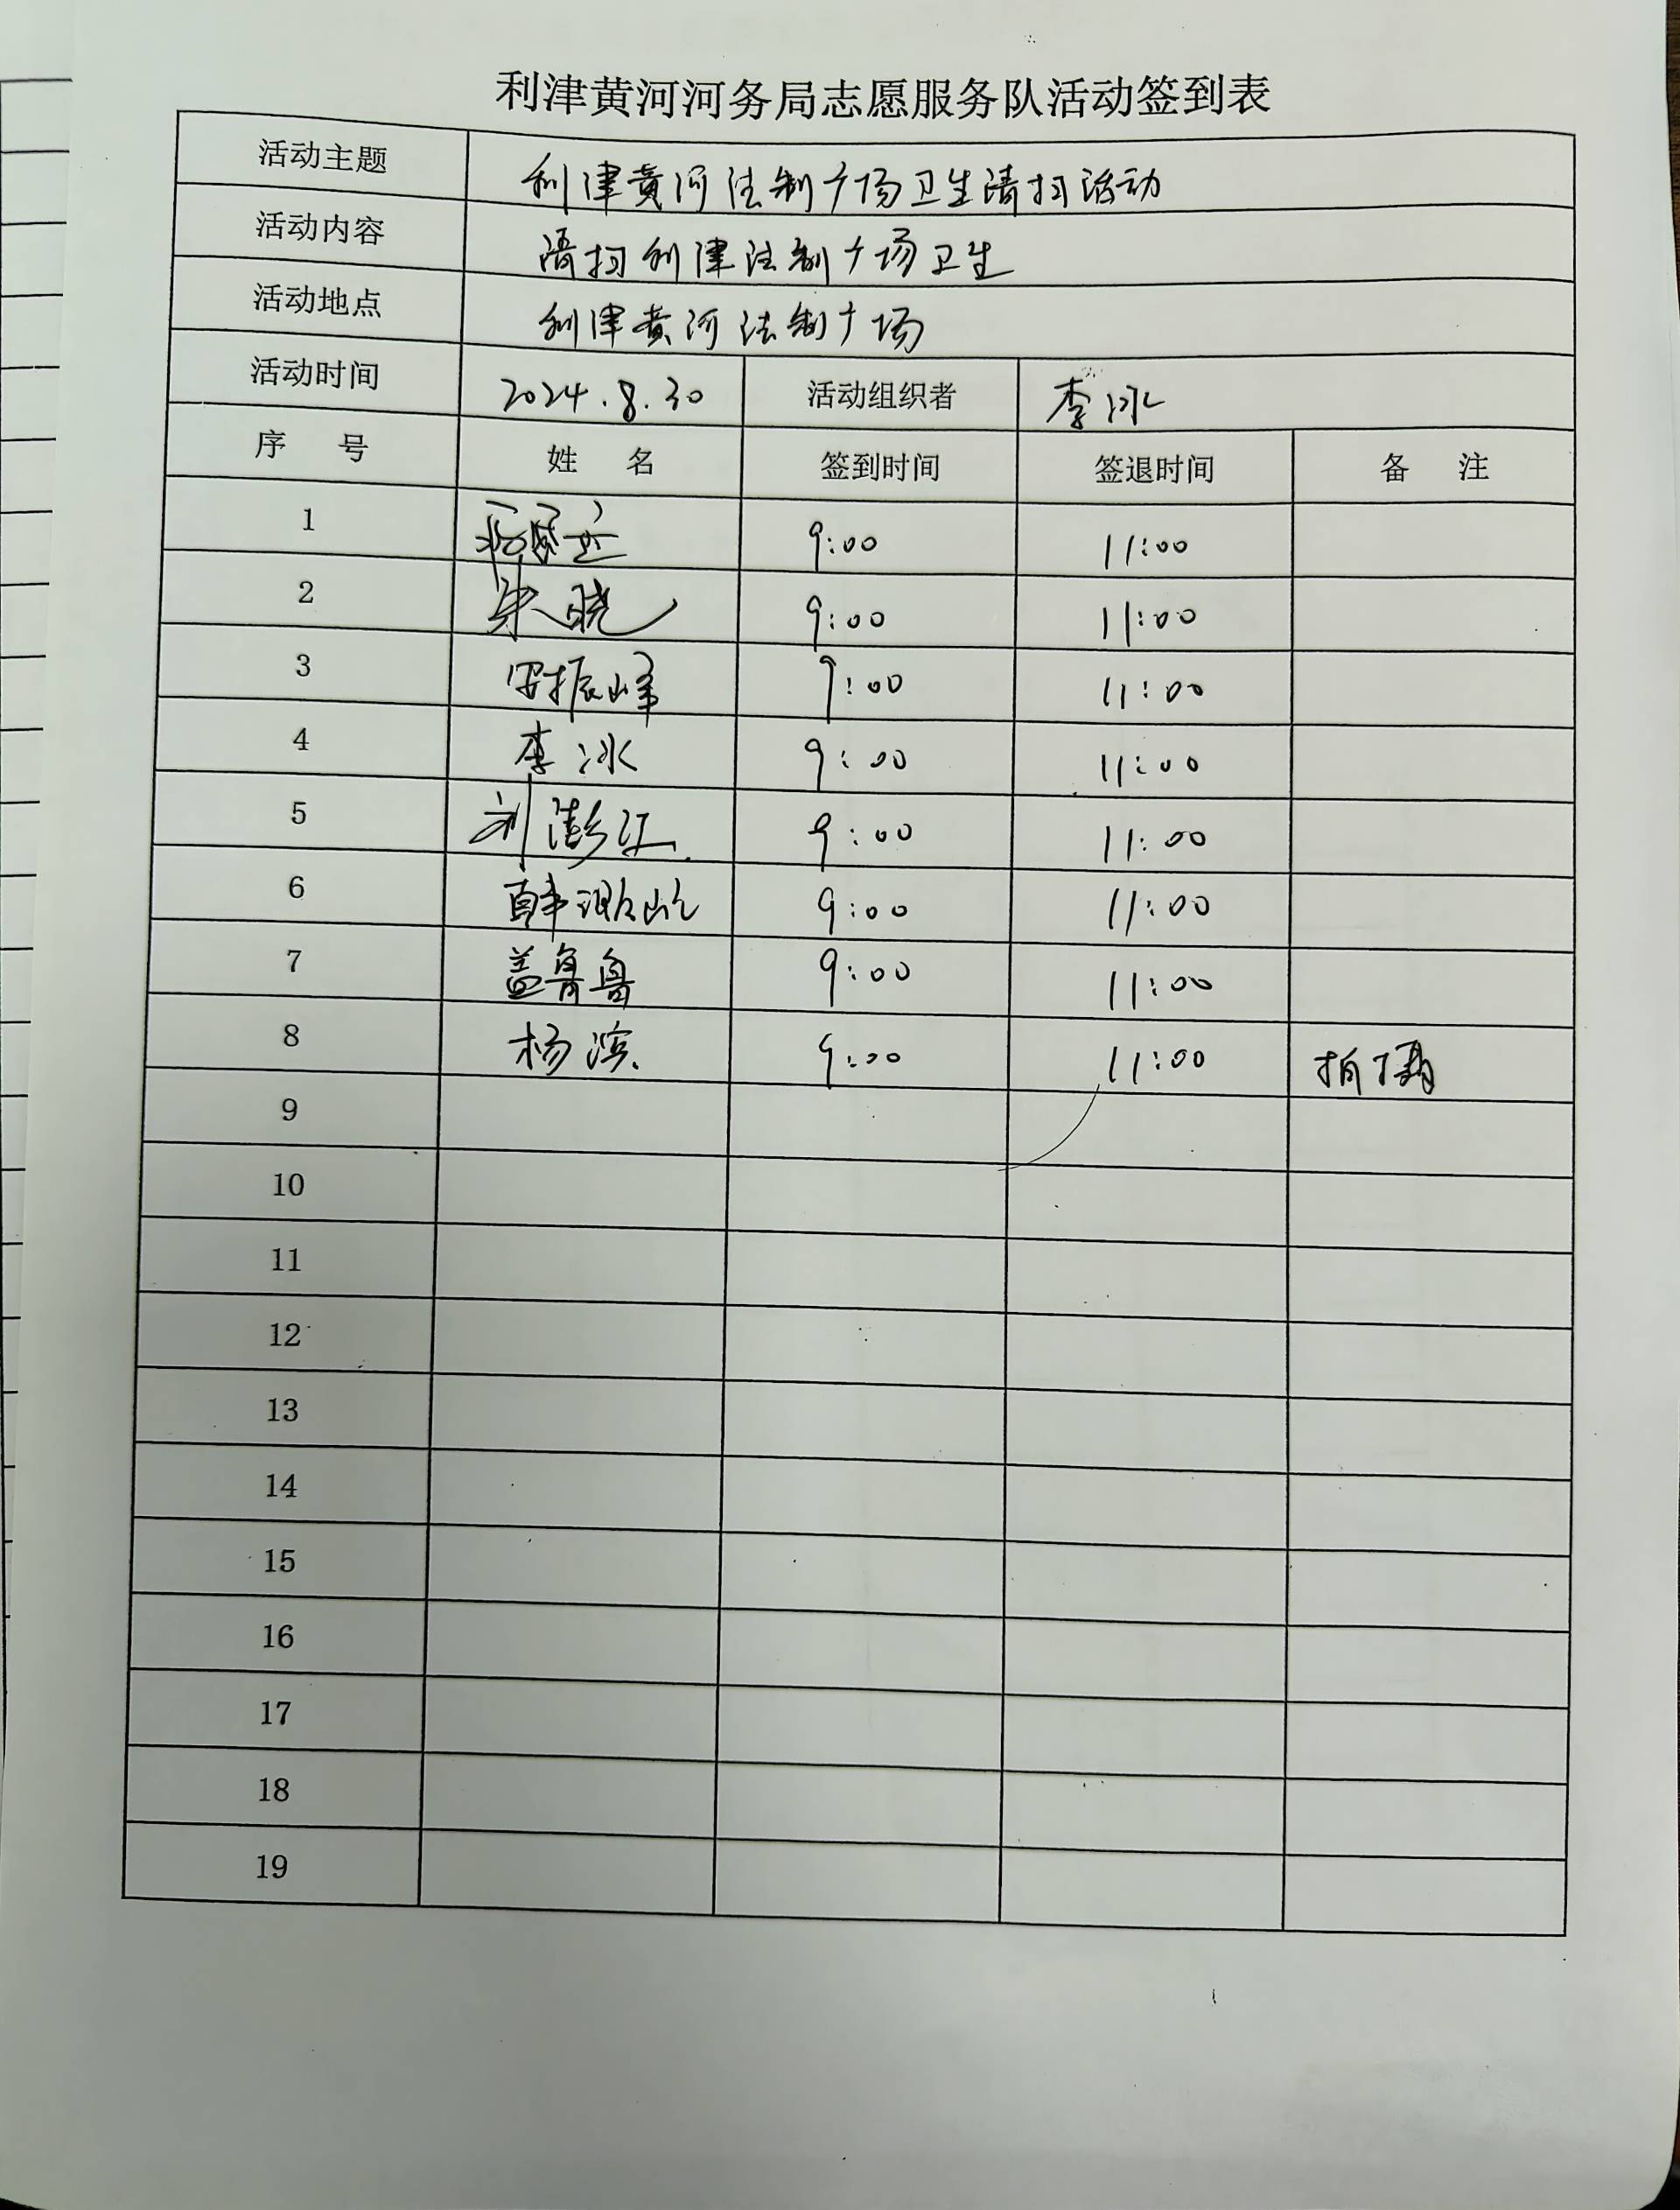 利津黄河河务局志愿服务队活动签到表
活动主题 利津黄河法制广场卫生清扫活动
活动内容 清扫利津法制广场卫生
活动地点 利津黄河法制广场
活动时间 2024.8.30 活动组织者 李冰
序 号 姓 名 签到时间 签退时间 备 注
1 9:00 11:00
2 朱晓 9:00 11:00
3 安振峰 9:00 11:00
4 李冰 9:00 11:00
5 刘澎江 9:00 11:00
6 9:00 11:00
7 盖鲁鲁 9:00 11:00
8 杨滨 9:00 11:00 拍摄
9
10
11
12
13
14
15
16
17
18
19